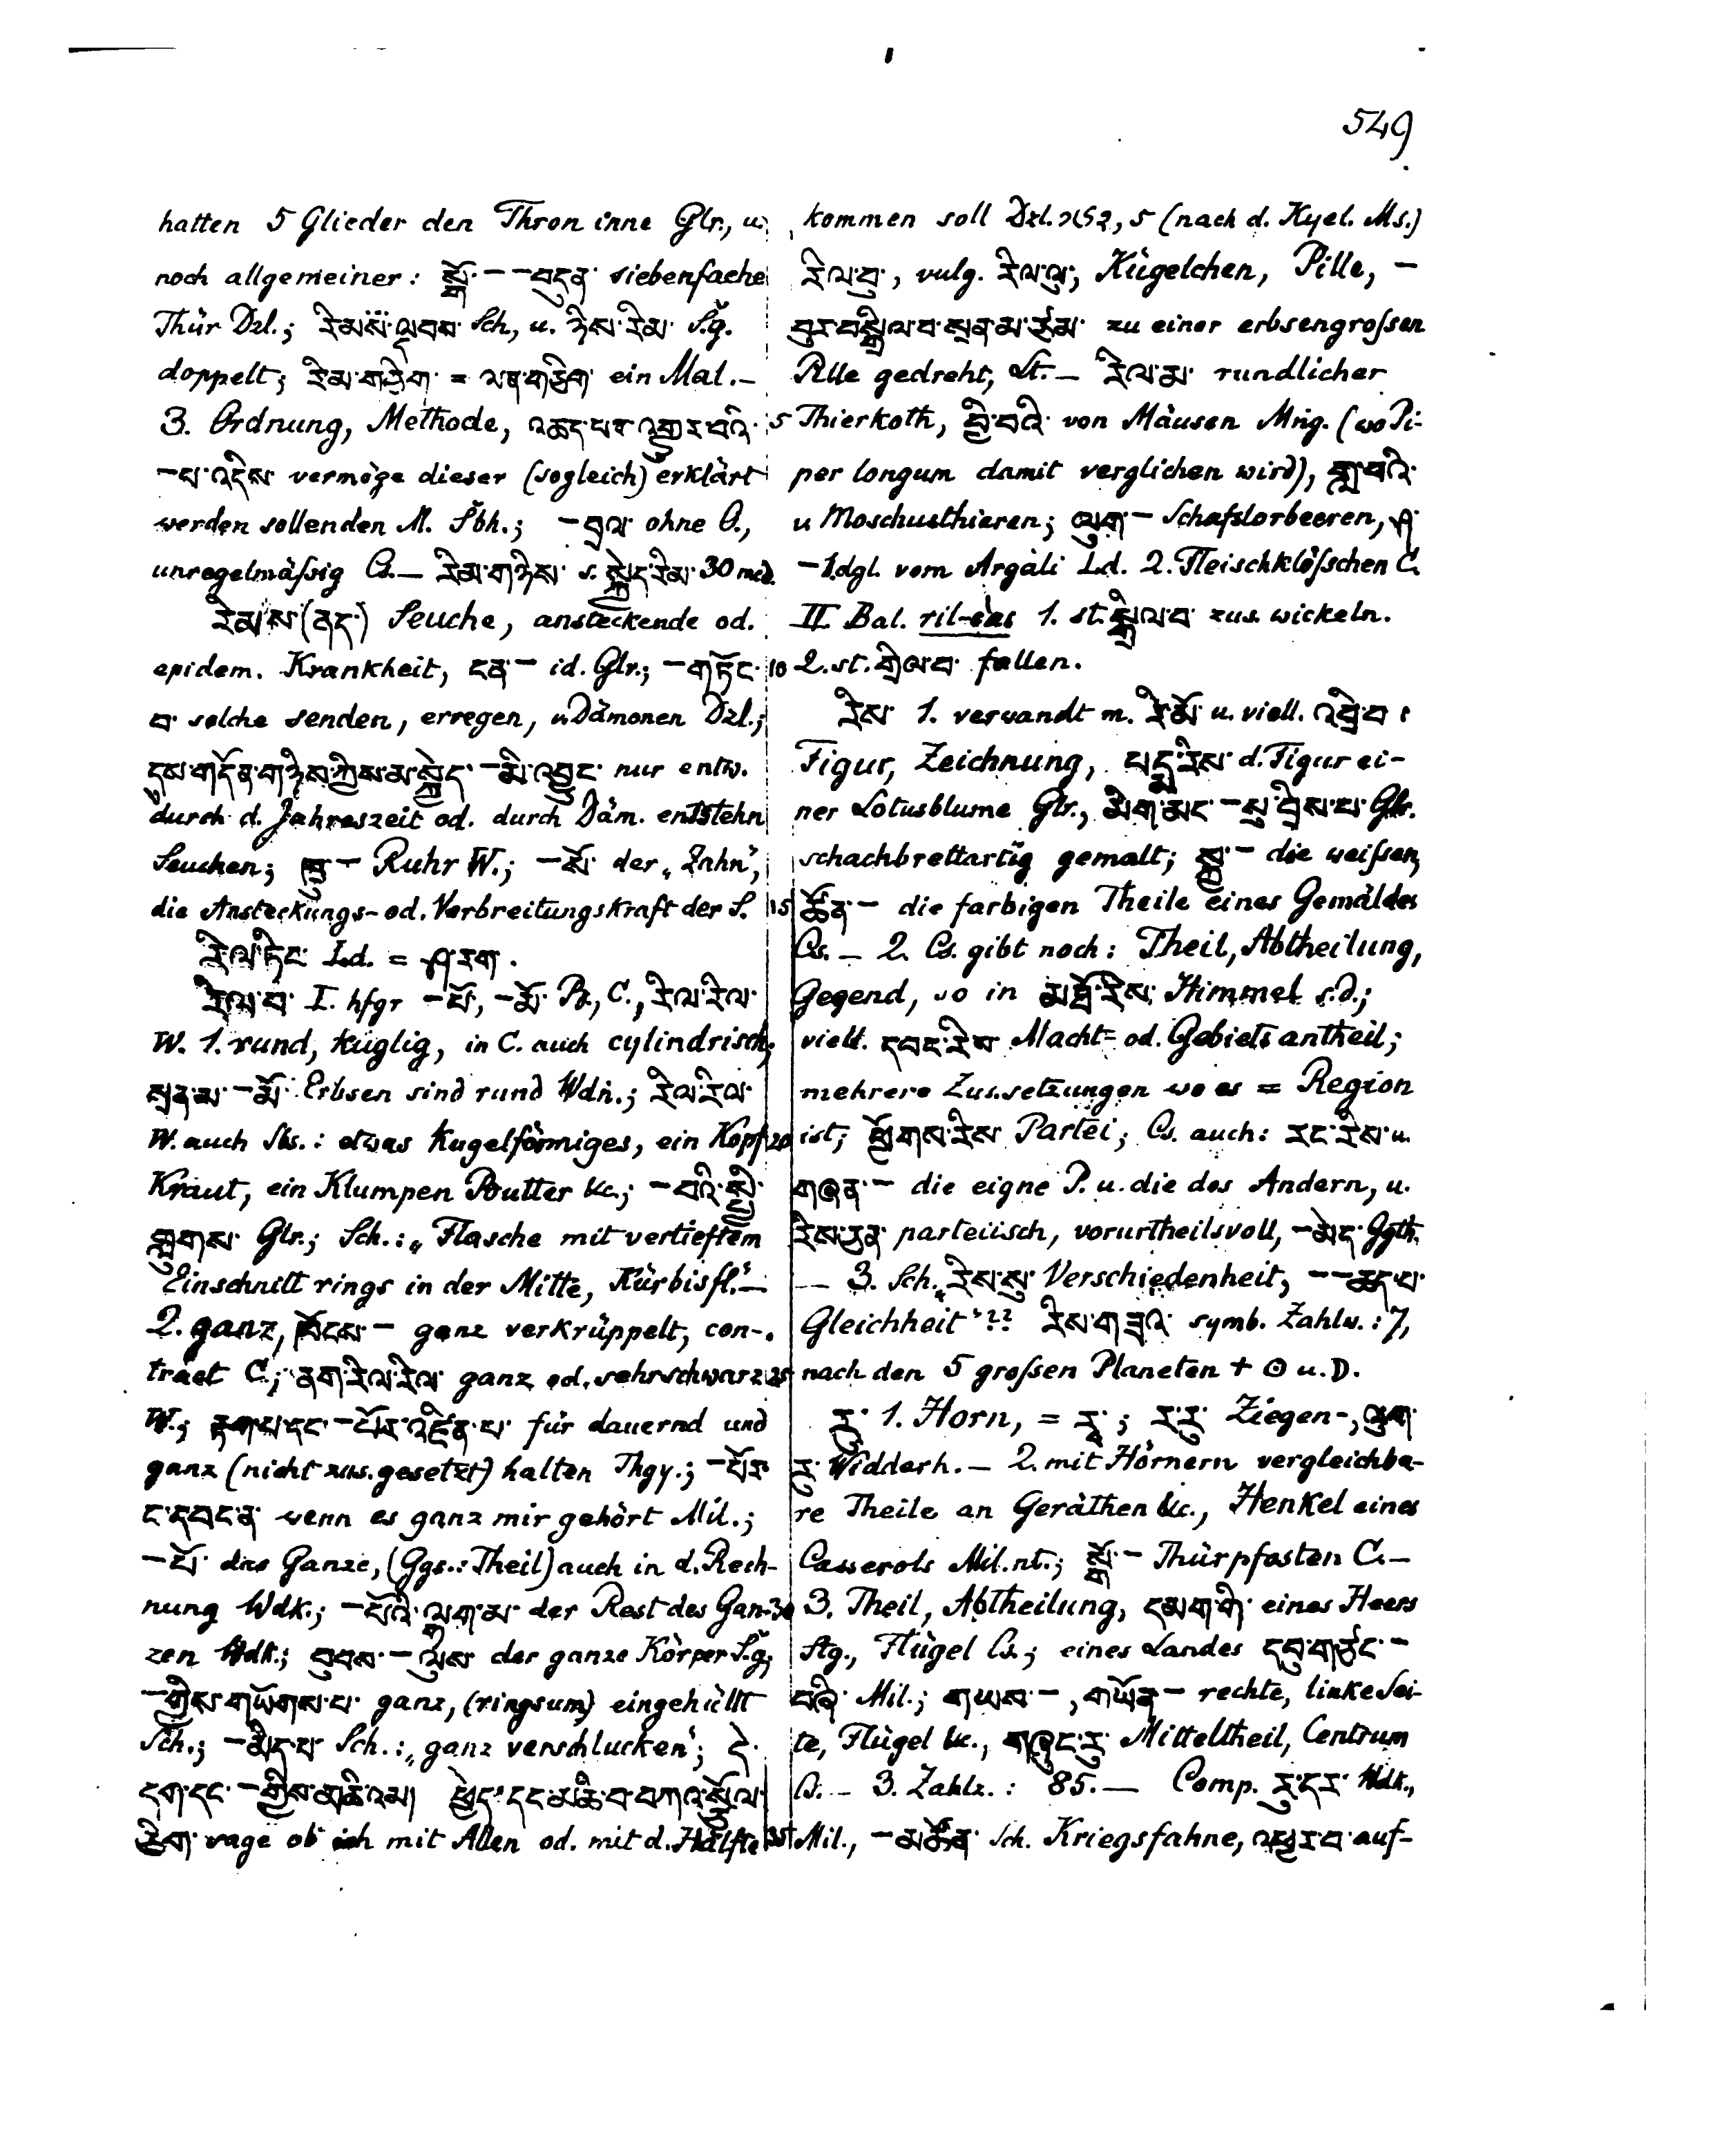 549
hatten 5 Glieder den Thron inne Glr., u.
noch allgemeiner: སྒོ་ – – བདུན་ siebenfache
Thür Dzl.; རིམས་ལྡབས་ Sch, u. ཉིས་རིམ་ S.g.
doppelt; རིམ་གཅིག་ = ལན་གཅིག་ ein Mal. –
3. Ordnung, Methode, འཆད་པར་འགྱུར་བའི་
– པ་འདིས་ vermöge dieser (sogleich) erklärt
werden sollenden M. Sbh.; – བྲལ་ ohne O.,
unregelmäßig Cs. – རིམ་གཉིས་ s. སྐྱེད་རིམ་ 30 med.
རིམས་(ནད་) Seuche, ansteckende od.
epidem. Krankheit, ངན་ – id. Glr.; – གཏོང་
བ་ solche senden, erregen, v. Dämonen Dzl.;
དུས་གདོན་གཉིས་ཀྱིས་མ་སྐྱེད་ – མི་འབྱུང་ nur entw.
durch d. Jahreszeit od. durch Däm. entstehn
Seuchen; – Ruhr W.; – སོ་ der „Zahn",
die Ansteckungs- od. Verbreitungskraft der S.
རིལ་ཏིང་ Ld. = རྭ་རག་.
རིལ་བ་ I. hfgr – པོ་, – མོ་ Pz., C., རིལ་རིལ་
W. 1. rund, kuglig, in C. auch cylindrisch;
སྲན་མ་ – མོ་ Erbsen sind rund Wdn.; རིལ་རིལ་
W. auch Sbs.: etwas Kugelförmiges, ein Kopf
Kraut, ein Klumpen Butter &c.; – བའི་
Glr.; Sch.: „Flasche mit vertieftem
Einschnitt rings in der Mitte, Kürbisfl." –
2. ganz, – ganz verkrüppelt, con-
tract C.; ནག་རིལ་རིལ་ ganz od. sehr schwarz
W.; རྟག་པ་དང་ – པོར་འཛིན་པ་ für dauernd und
ganz (nicht zus.gesetzt) halten Thgy.; – པོར་
ང་དབང་ན་ wenn es ganz mir gehört Mil.;
– པོ་ das Ganze, (Ggs.: Theil) auch in d. Rech-
nung Wdk.; – པོའི་ལྷག་མ་ der Rest des Gan-
zen Wdk.; – ལུས་ der ganze Körper S.g.;
– གྱིས་གཡོགས་པ་ ganz, (ringsum) eingehüllt
Sch.; – མིད་པ་ Sch.: „ganz verschlucken"; དེ་
དག་དང་ – གྱིས་མཆིའམ། ཕྱེད་དང་མཆི་བ་བཀའ་སྩོལ་
ཅིག་ sage ob ich mit Allen od. mit d. Hälfte
kommen soll Dzl. 252, 5 (nach d. Kyel. Ms.)
རིལ་བུ་, vulg. རིལ་ལུ་, Kügelchen, Pille, –
བུར་བསྒྲིལ་བ་སྲན་མ་ཙམ་ zu einer erbsengroßen
Pille gedreht, Lt. – རིལ་མ་ rundlicher
5 Thierkoth, བྱི་བའི་ von Mäusen Mng. (wo Pi-
per longum damit verglichen wird), གླ་བའི་
v. Moschusthieren; ལུག་ – Schafslorbeeren,
– 1. dgl. vom Argali Ld. 2. Fleischklößchen C.
II. Bal. ril-ćas 1. st. སྒྲིལ་བ་ zus. wickeln.
10 2. st. གྲིལ་བ་ fallen.
རིས་ 1. verwandt m. རི་མོ་ u. viell. འབྲི་བ་:
Figur, Zeichnung, པདྨ་རིས་ d. Figur ei-
ner Lotusblume Glr., མིག་མང་ – སུ་བྲིས་པ་ Glr.
schachbrettartig gemalt; སྐྱ་ – die weißen,
15 ཚོན་ – die farbigen Theile eines Gemäldes
Cs. – 2. Cs. gibt noch: Theil, Abtheilung,
Gegend, so in མཐོ་རིས་ Himmel s.d.;
viell. དབང་རིས་ Macht- od. Gebietsantheil;
mehrere Zus.setzungen wo es = Region
20 ist; ཕྱོགས་རིས་ Partei; Cs. auch: རང་རིས་ u.
གཞན་ – die eigne P. u. die des Andern, u.
རིས་ཅན་ parteiisch, vorurtheilsvoll, – མེད་ Ggth.
– 3. Sch. རིས་སུ་ Verschiedenheit, – – ཆད་པ་
Gleichheit"?? རིས་གཟའ་ symb. Zahlw.: 7,
25 nach den 5 großen Planeten + ☉ u. ☽.
རུ་ 1. Horn, = རྭ་; ར་རུ་ Ziegen-, ལུག་
རུ་ Widderh. – 2. mit Hörnern vergleichba-
re Theile an Geräthen &c., Henkel eines
Casserols Mil. nt.; སྒོ་ – Thürpfosten C. –
30 3. Theil, Abtheilung, དམག་གི་ eines Heers
Stg., Flügel Cs.; eines Landes དབུ་གཙང་ –
བཞི་ Mil.; གཡས་ –, གཡོན་ – rechte, linke Sei-
te, Flügel &c., གཞུང་རུ་ Mitteltheil, Centrum
Cs. – 3. Zahlz.: 85. – Comp. རུ་དར་ Wdk.,
35 Mil., – མཚོན་ Sch. Kriegsfahne, འཕྱར་བ་ auf-